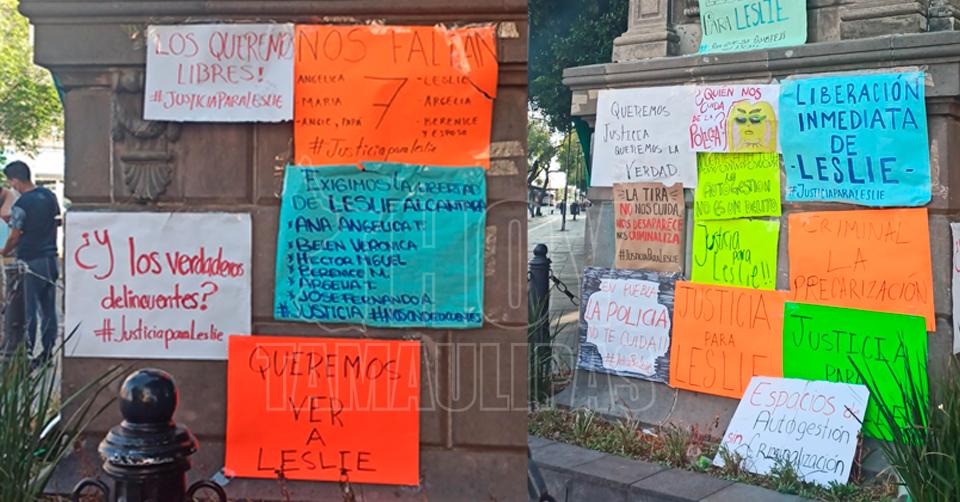 LOS QUEREMOS
LIBRES!
#JUSTICIAPARALESLIE
NOS FALTAN
7
ANGELICA
- MARIA
- ANGIE, PAPÁ
- LESLIE
- ARGELIA
- BERENICE
Y ESPOSO
#Justicia para leslie
EXIGIMOS LA LIBERTAD
DE LESLIE ALCANTARA
• ANA ANGELICA T.
• BELEN VERONICA
• HECTOR MIGUEL
• BERENICE M.
• ARGELIA T.
• JOSE FERNANDO A.
#JUSTICIA #NOSONDELINCUENTES
¿Y los verdaderos
delincuentes?
#JusticiaparaLeslie
QUEREMOS
VER
A
LESLIE
HOY
TAMAULIPAS
PARA LESLIE
QUEREMOS
JUSTICIA
QUEREMOS LA
VERDAD.
¿QUIEN NOS
CUIDA
DE LA
POLICÍA?
-LIBERACIÓN
INMEDIATA
DE
-LESLIE-
#JUSTICIAPARALESLIE
LA AUTOGESTIÓN
NO ES UN DELITO
LA TIRA
NO NOS CUIDA
NOS DESAPARECE
NOS CRIMINALIZA
#JUSTICIAPARALESLIE
Justicia
para
Leslie!!
CRIMINAL
LA
PRECARIZACIÓN
EN PUEBLA
LA POLICIA
NO TE CUIDA!!
JUSTICIA
PARA
LESLIE
JUSTICIA
PARA
ESPACIOS de
Autogestión
sin
Criminalización